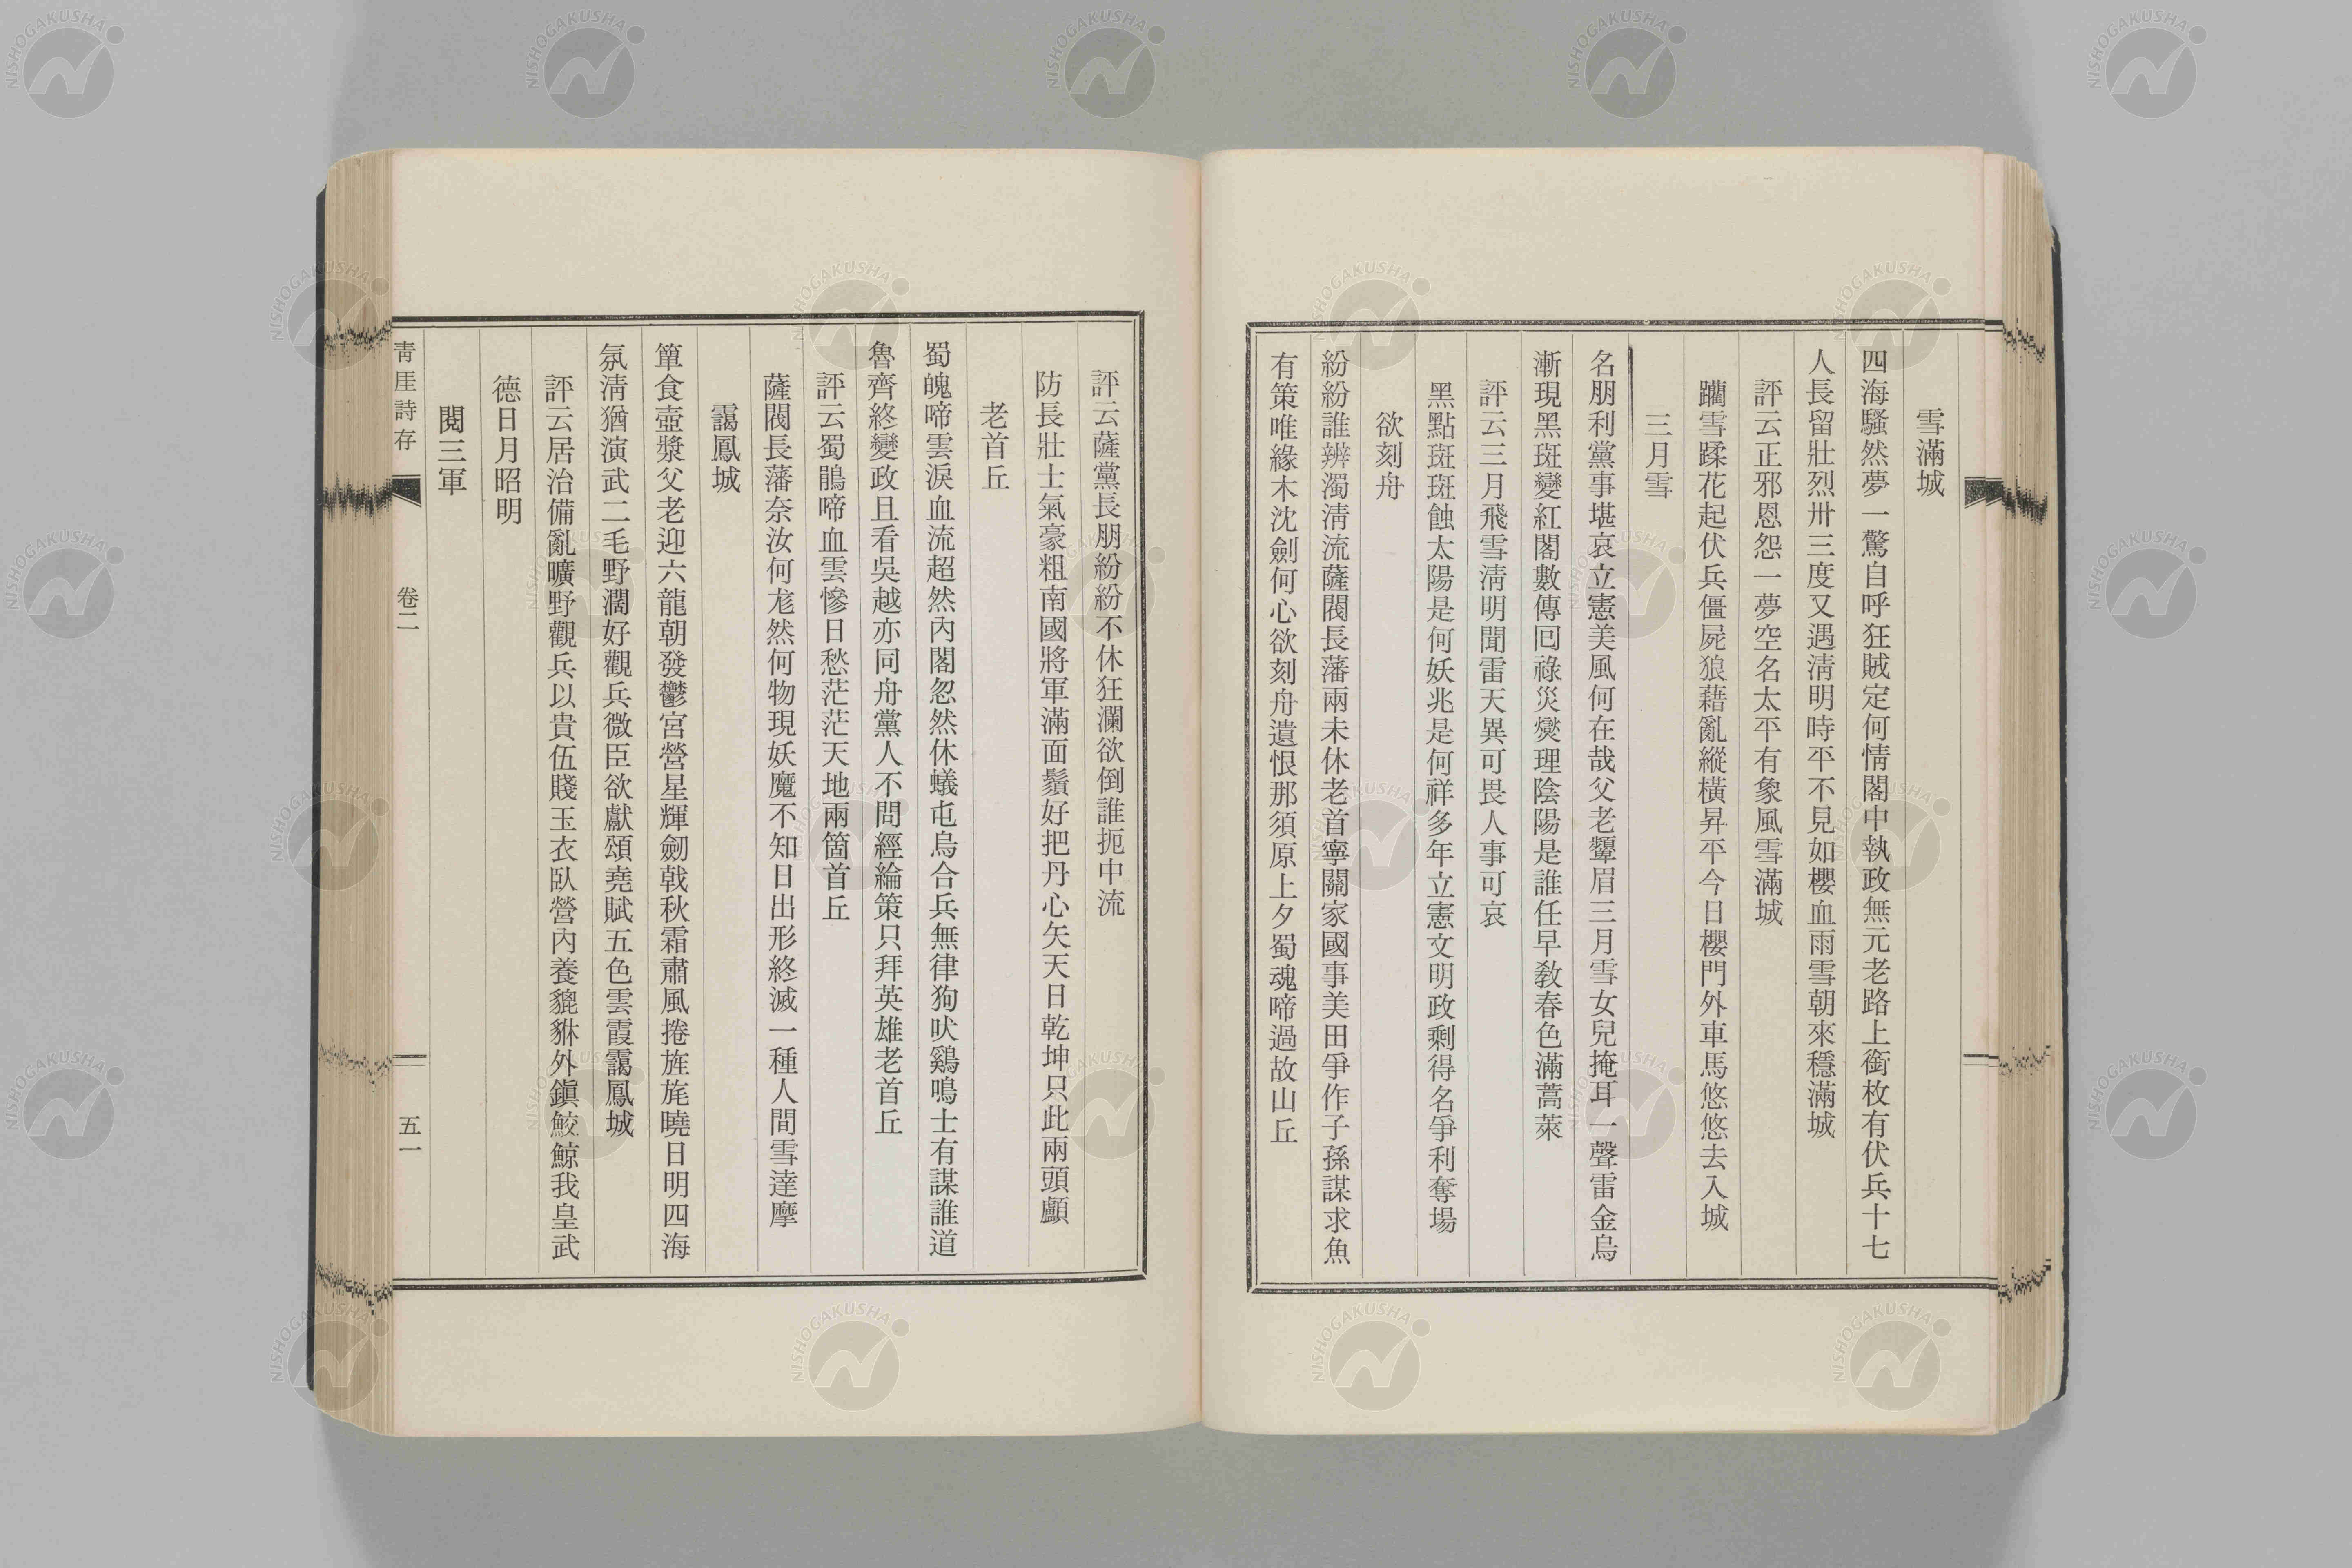 雪滿城
四海騷然夢一驚自呼狂賊定何情閣中執政無元老路上銜枚有伏兵十七
人長留壯烈卅三度又遇淸明時平不見如櫻血雨雪朝來穩滿城
評云正邪恩怨一夢空名太平有象風雪滿城
躪雪蹂花起伏兵僵屍狼藉亂縱橫昇平今日櫻門外車馬悠悠去入城
三月雪
名朋利黨事堪哀立憲美風何在哉父老顰眉三月雪女兒掩耳一聲雷金烏
漸現黑斑變紅閣數傳囘祿災爕理陰陽是誰任早敎春色滿蒿萊
評云三月飛雪淸明聞雷天異可畏人事可哀
黑點斑斑蝕太陽是何妖兆是何祥多年立憲文明政剩得名爭利奪場
欲刻舟
紛紛誰辨濁淸流薩閥長藩兩未休老首寧關家國事美田爭作子孫謀求魚
有策唯緣木沈劍何心欲刻舟遺恨那須原上夕蜀魂啼過故山丘
評云薩黨長朋紛紛不休狂瀾欲倒誰扼中流
防長壯士氣豪粗南國將軍滿面鬚好把丹心矢天日乾坤只此兩頭顱
老首丘
蜀魄啼雲淚血流超然內閣忽然休蟻屯烏合兵無律狗吠鷄鳴士有謀誰道
魯齊終變政且看吳越亦同舟黨人不問經綸策只拜英雄老首丘
評云蜀鵑啼血雲慘日愁茫茫天地兩箇首丘
薩閥長藩奈汝何尨然何物現妖魔不知日出形終滅一種人間雪達摩
靄鳳城
簞食壺漿父老迎六龍朝發鬱宮營星輝劒戟秋霜肅風捲旌旄曉日明四海
氛淸猶演武二毛野濶好觀兵微臣欲獻頌堯賦五色雲霞靄鳳城
評云居治備亂曠野觀兵以貴伍賤玉衣臥營內養貔貅外鎭鮫鯨我皇武
德日月昭明
閱三軍
靑厓詩存
卷二
五一
NISHOGAKUSHA